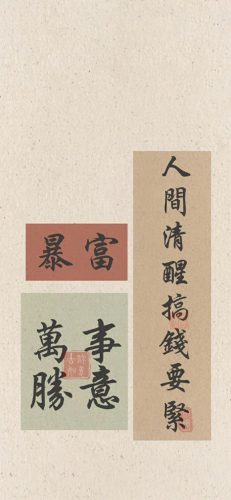 人間清醒搞錢要緊
暴富
萬事
勝意